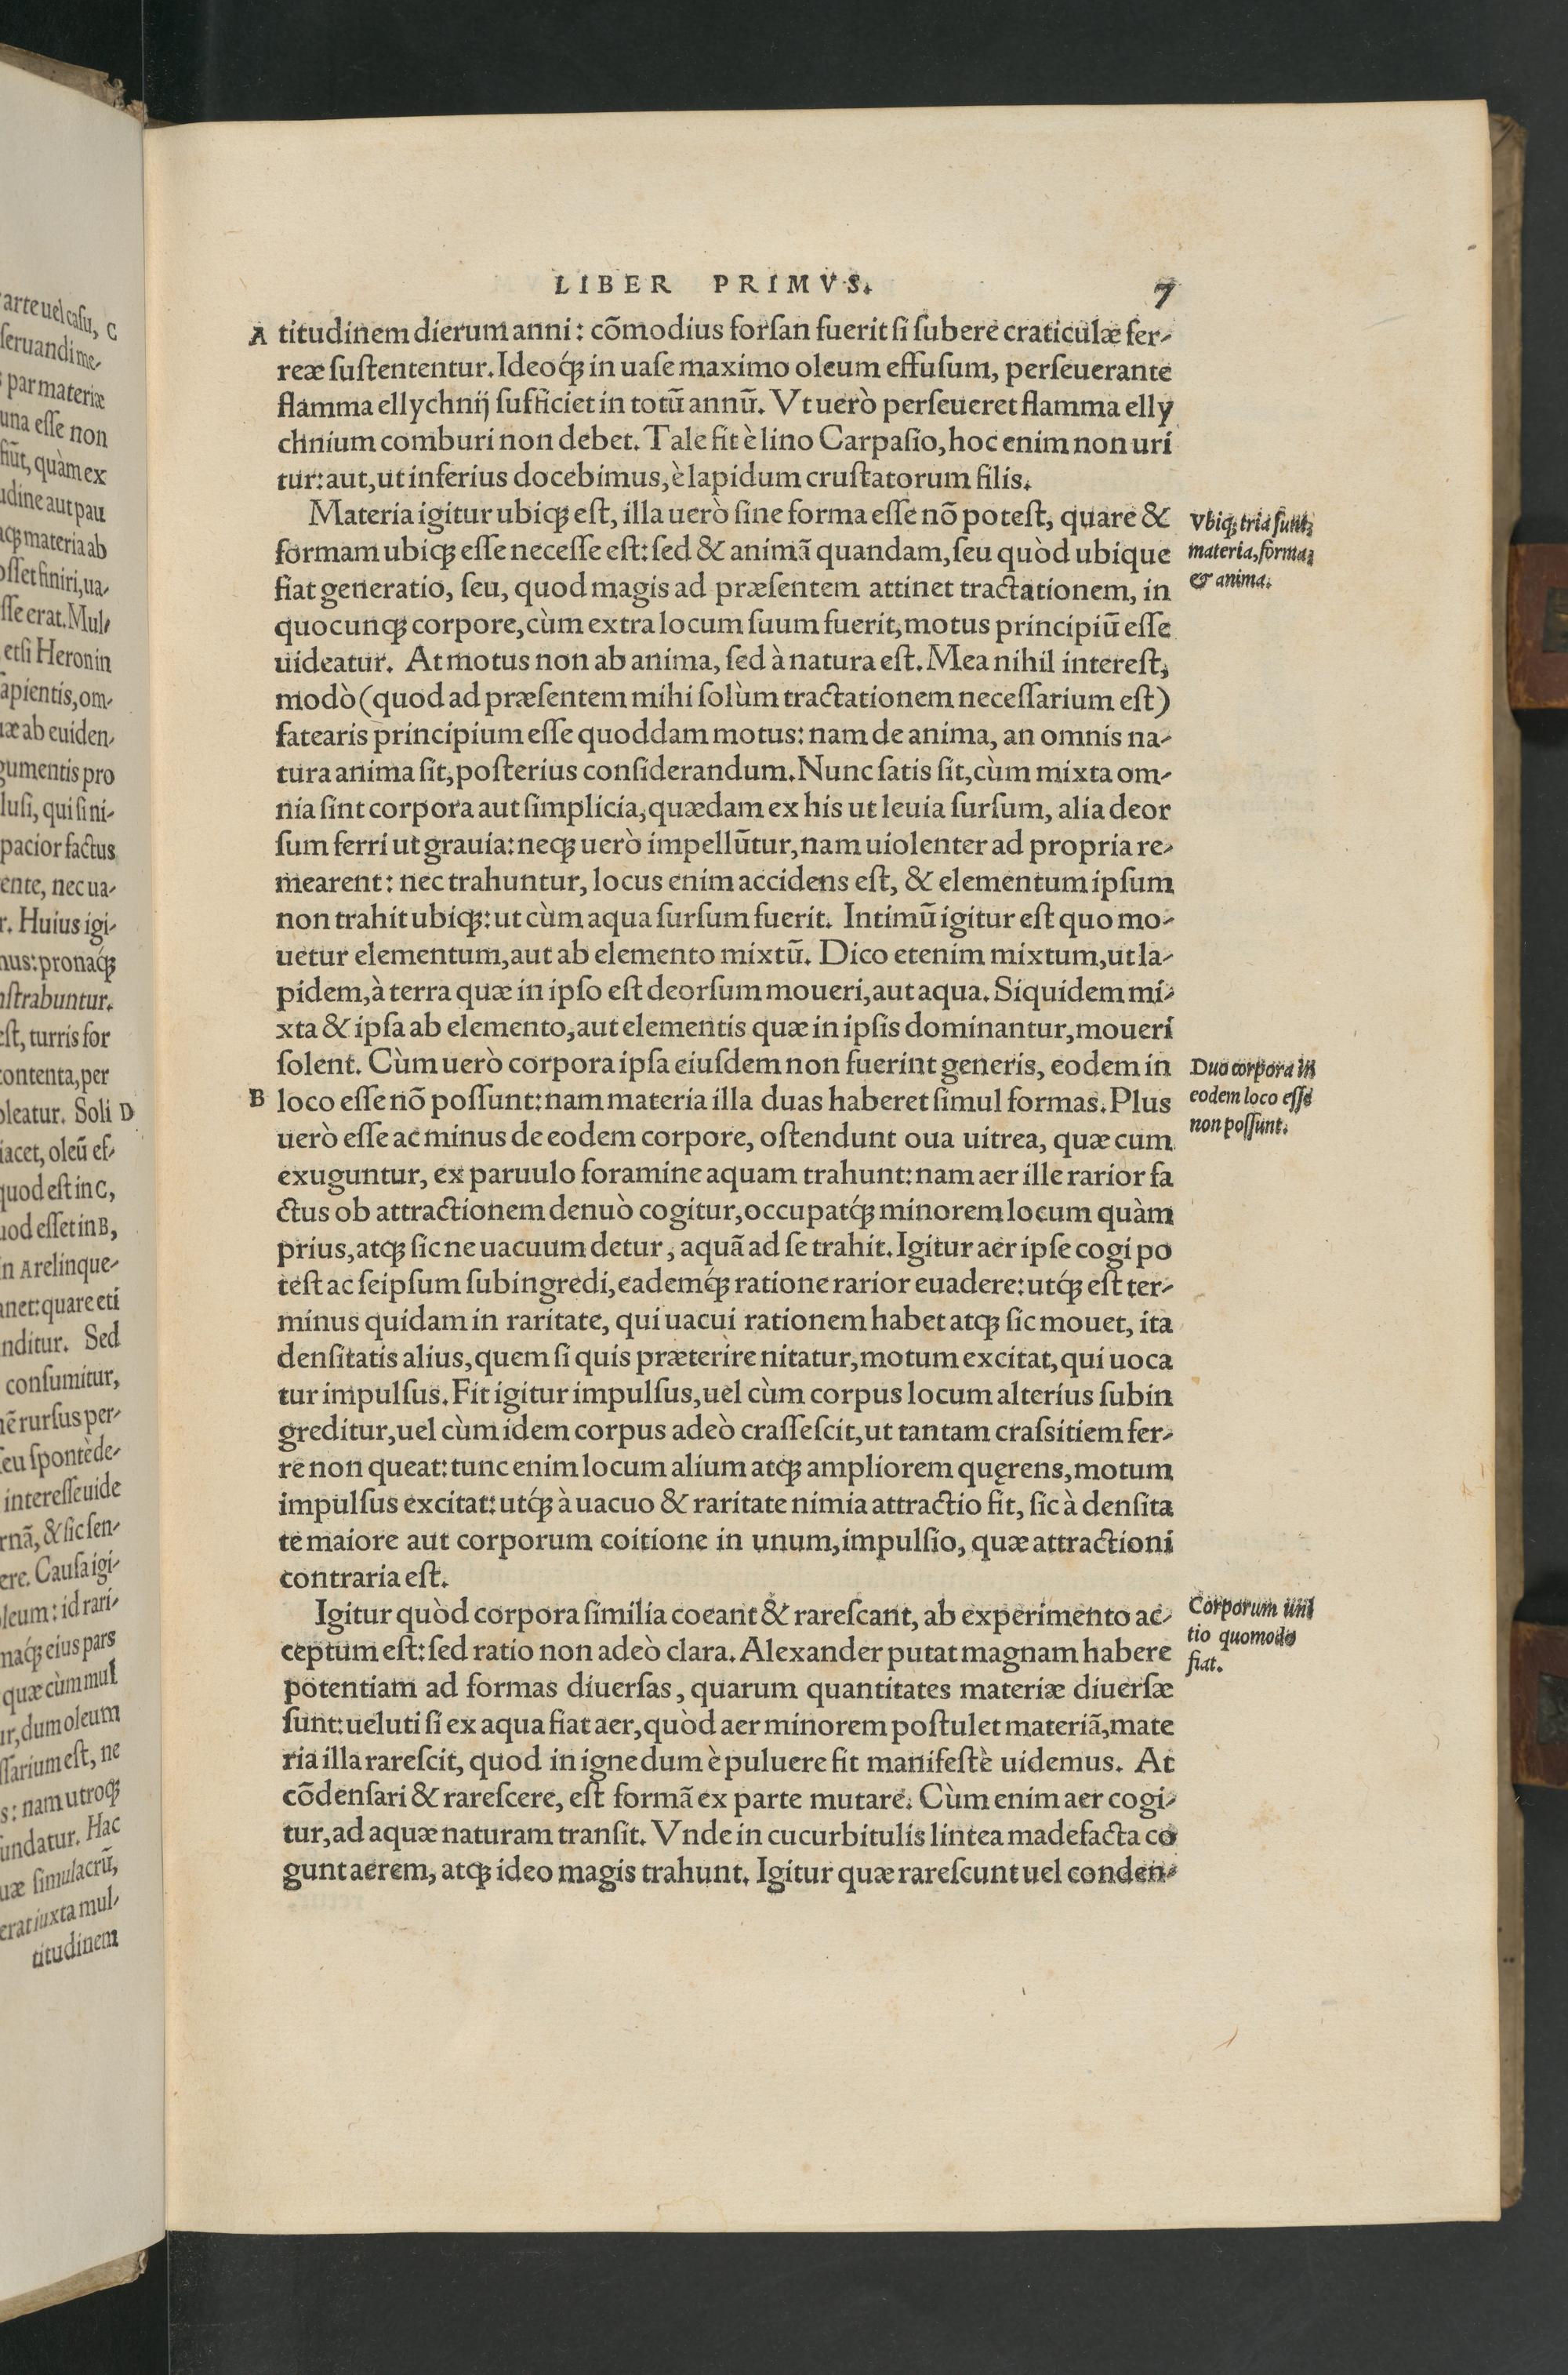 LIBER PRIMVS. 7
A titudinem dierum anni: cõmodius forſan fuerit ſi ſubere craticulæ fer-
reæ ſuſtententur. Ideoq́ꝫ in uaſe maximo oleum effuſum, perſeuerante
flamma ellychnij ſufficiet in totũ annũ. Vt uerò perſeueret flamma elly
chnium comburi non debet. Tale fit è lino Carpaſio, hoc enim non uri
tur: aut, ut inferius docebimus, è lapidum cruſtatorum filis.
Materia igitur ubiqꝫ eſt, illa uerò ſine forma eſſe nõ poteſt, quare &
formam ubiqꝫ eſſe neceſſe eſt: ſed & animã quandam, ſeu quòd ubique
fiat generatio, ſeu, quod magis ad præſentem attinet tractationem, in
quocunqꝫ corpore, cùm extra locum ſuum fuerit, motus principiũ eſſe
uideatur. At motus non ab anima, ſed à natura eſt. Mea nihil intereſt,
modò (quod ad præſentem mihi ſolùm tractationem neceſſarium eſt)
fatearis principium eſſe quoddam motus: nam de anima, an omnis na-
tura anima ſit, poſterius conſiderandum. Nunc ſatis ſit, cùm mixta om-
nia ſint corpora aut ſimplicia, quædam ex his ut leuia ſurſum, alia deor
ſum ferri ut grauia: neqꝫ uerò impellũtur, nam uiolenter ad propria re-
mearent: nec trahuntur, locus enim accidens eſt, & elementum ipſum
non trahit ubiqꝫ: ut cùm aqua ſurſum fuerit. Intimũ igitur eſt quo mo-
uetur elementum, aut ab elemento mixtũ. Dico etenim mixtum, ut la-
pidem, à terra quæ in ipſo eſt deorſum moueri, aut aqua. Siquidem mi-
xta & ipſa ab elemento, aut elementis quæ in ipſis dominantur, moueri
ſolent. Cùm uerò corpora ipſa eiuſdem non fuerint generis, eodem in
B loco eſſe nõ poſſunt: nam materia illa duas haberet ſimul formas. Plus
uerò eſſe ac minus de eodem corpore, oſtendunt oua uitrea, quæ cum
exuguntur, ex paruulo foramine aquam trahunt: nam aer ille rarior fa
ctus ob attractionem denuò cogitur, occupatq́ꝫ minorem locum quàm
prius, atqꝫ ſic ne uacuum detur, aquã ad ſe trahit. Igitur aer ipſe cogi po
teſt ac ſeipſum ſubingredi, eademq́ꝫ ratione rarior euadere: utq́ꝫ eſt ter-
minus quidam in raritate, qui uacui rationem habet atqꝫ ſic mouet, ita
denſitatis alius, quem ſi quis præterire nitatur, motum excitat, qui uoca
tur impulſus. Fit igitur impulſus, uel cùm corpus locum alterius ſubin
greditur, uel cùm idem corpus adeò craſſeſcit, ut tantam craſsitiem fer-
re non queat: tunc enim locum alium atqꝫ ampliorem quęrens, motum
impulſus excitat: utq́ꝫ à uacuo & raritate nimia attractio fit, ſic à denſita
te maiore aut corporum coitione in unum, impulſio, quæ attractioni
contraria eſt.
Igitur quòd corpora ſimilia coeant & rareſcant, ab experimento ac-
ceptum eſt: ſed ratio non adeò clara. Alexander putat magnam habere
potentiam ad formas diuerſas, quarum quantitates materiæ diuerſæ
ſunt: ueluti ſi ex aqua fiat aer, quòd aer minorem poſtulet materiã, mate
ria illa rareſcit, quod in igne dum è puluere fit manifeſtè uidemus. At
cõdenſari & rareſcere, eſt formã ex parte mutare. Cùm enim aer cogi-
tur, ad aquæ naturam tranſit. Vnde in cucurbitulis lintea madefacta co
gunt aerem, atqꝫ ideo magis trahunt. Igitur quæ rareſcunt uel conden-
Vbiqꝫ tria ſunt,
materia, forma,
& anima.
Duo corpora in
eodem loco eſſe
non poſſunt.
Corporum uni
tio quomodo
fiat.
arte uel caſu, C
ſeruandi me-
par materiæ
una eſſe non
fiũt, quàm ex
udine aut pau
aqꝫ materia ab
oſſet finiri, ua-
ſſe erat. Mul-
etſi Heron in
ſapientis, om-
uæ ab euiden-
gumentis pro
luſi, qui ſi ni-
pacior factus
ente, nec ua-
r. Huius igi-
mus: pronaq́ꝫ
nſtrabuntur.
eſt, turris for
contenta, per
oleatur. Soli D
iacet, oleũ ef-
quod eſt in C,
uod eſſet in B,
in A relinque-
anet: quare eti
nditur. Sed
conſumitur,
nẽ rurſus per-
ſeu ſpontè de-
intereſſe uide
rnã, & ſic ſen-
ere. Cauſa igi-
oleum: id rari-
maq́ꝫ eius pars
quæ cùm mul
ur, dum oleum
ſſarium eſt, ne
s: nam utroqꝫ
fundatur. Hac
uæ ſimulacrũ,
erat iuxta mul-
titudinem